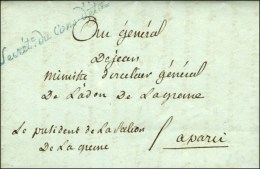 Secrét. du Cons
Au général
Dejean
Ministre directeur général
de L'adon de Laguerre
Le président de la section
De La guerre
aparis